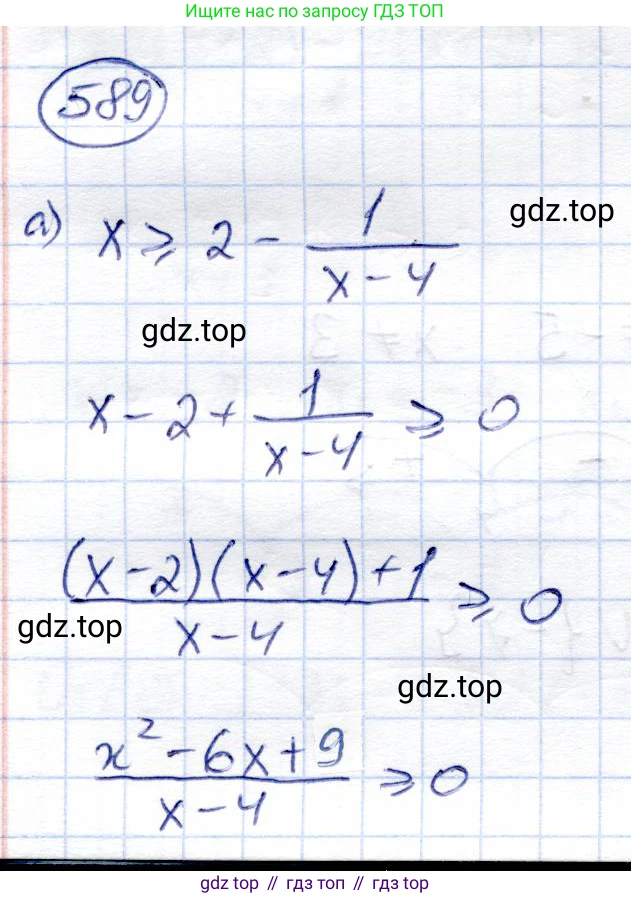 Ищите нас по запросу ГДЗ ТОП
589
а) x ⩾ 2 - 1/(x - 4)
gdz.top
gdz.top
x - 2 + 1/(x - 4) ⩾ 0
((x - 2)(x - 4) + 1)/(x - 4) ⩾ 0
gdz.top
gdz.top
(x² - 6x + 9)/(x - 4) ⩾ 0
gdz top // гдз топ // gdz top